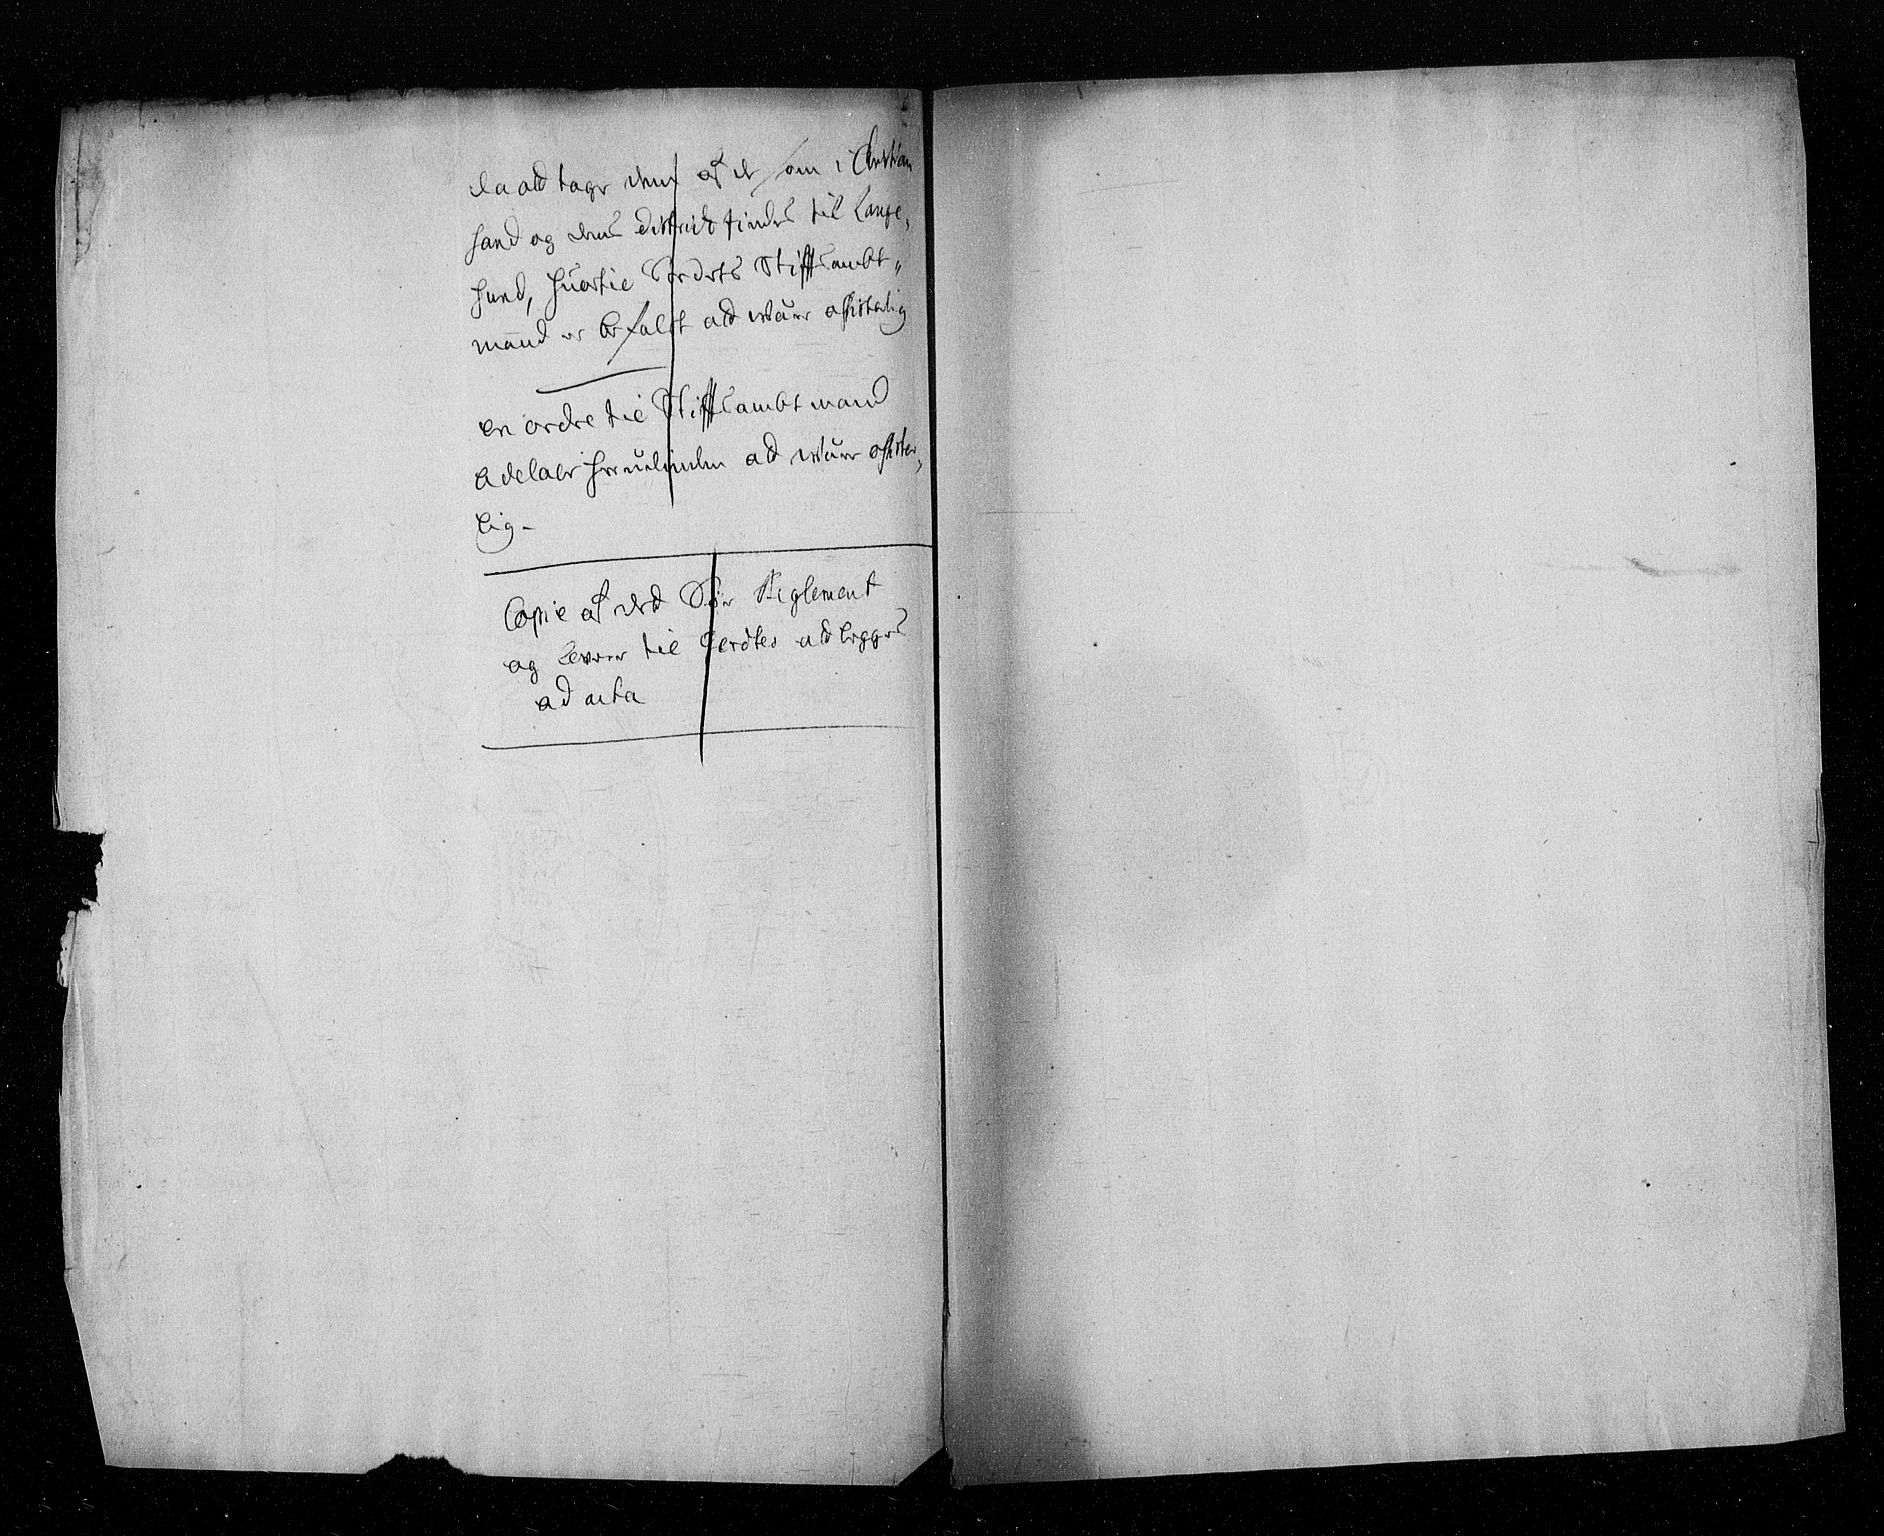 da ald tage dem af de som i Christian
sand og dens district findes til Lange,
sund, huortil Sted. Stifftsambt„
mand er befalet ald være assisterlig
en ordre til Stifftsambtmand
Adelaer herudinden ald være assister,
lig -
Copie af ded Søe Reglement
og levere til Gerdtes ald legges
ad acta